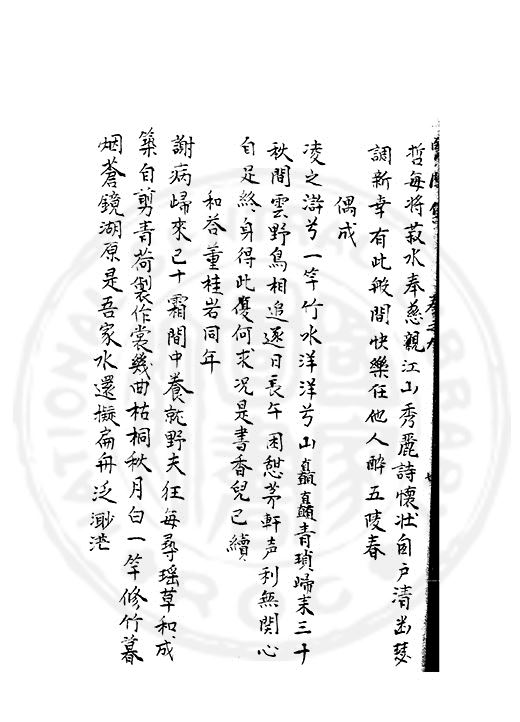 哲每将菽水奉慈親江山秀麗詩懷壯自户清幽琴
調新幸有此般間快樂任他人醉五陵春
偶成
凌之滸兮一竿竹水洋洋兮山矗矗青瑣歸来三十
秋間雲野鳥相追逐日長午困憩茅軒声利無関心
自足終身得此復何求况是書香兒已續
和答董桂岩同年
謝病歸來已十霜間中養就野夫狂每尋瑶草和成
築自剪青荷製作裳幾曲枯桐秋月白一竿修竹暮
烟蒼鏡湖原是吾家水還擬扁舟泛渺茫